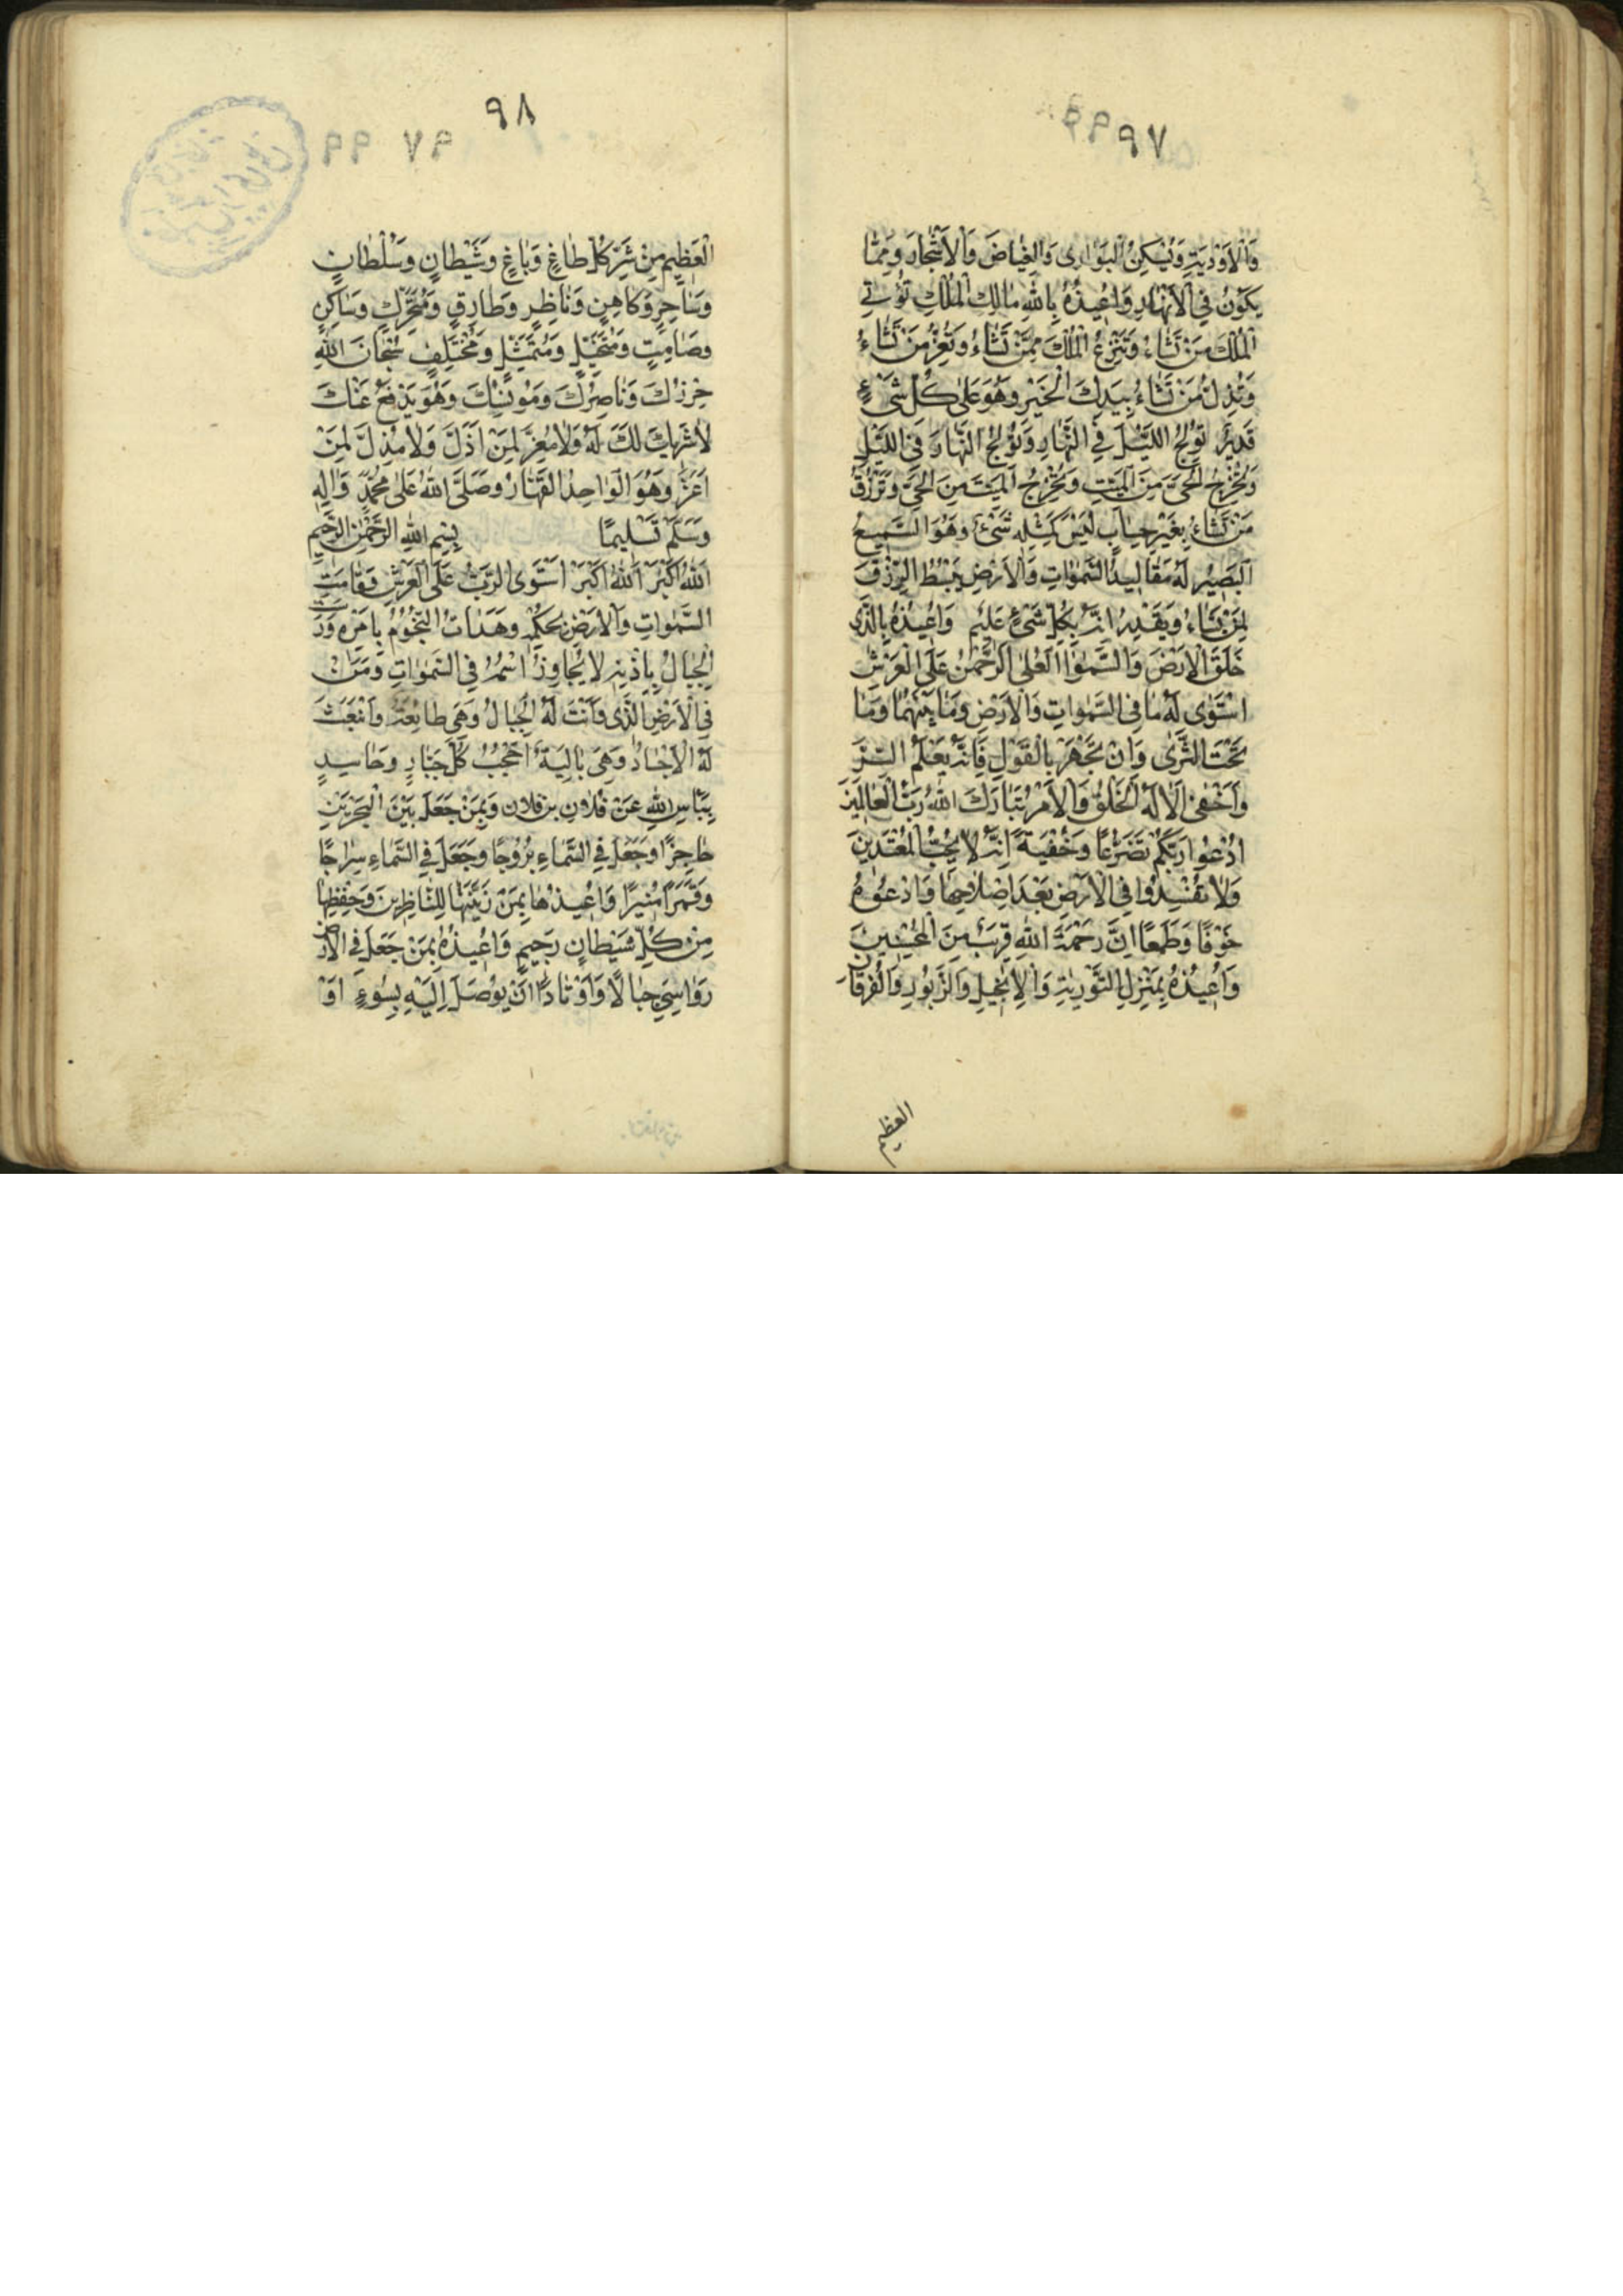 ٩٧
وَالْاَوْدِيَةِ وَيَسْكُنُ الْبَوَارِى وَالْغِيَاضَ وَالْاَشْجَارَ وَمِمَّا
يَكُونُ فِي الْاَنْهَارِ وَاُعِيذُهُ بِاللهِ مَالِكَ الْمُلْكِ تُؤْتِي
الْمُلْكَ مَنْ تَشَاءُ وَتَنْزِعُ الْمُلْكَ مِمَّنْ تَشَاءُ وَتُعِزُّ مَنْ تَشَاءُ
وَتُذِلُّ مَنْ تَشَاءُ بِيَدِكَ الْخَيْرُ وَهُوَ عَلٰى كُلِّ شَيْءٍ
قَدِيرٌ تُولِجُ اللَّيْلَ فِي النَّهَارِ وَتُولِجُ النَّهَارَ فِي اللَّيْلِ
وَتُخْرِجُ الْحَيَّ مِنَ الْمَيِّتِ وَتُخْرِجُ الْمَيِّتَ مِنَ الْحَيِّ وَتَرْزُقُ
مَنْ تَشَاءُ بِغَيْرِ حِسَابٍ لَيْسَ كَمِثْلِهِ شَيْءٌ وَهُوَ السَّمِيعُ
الْبَصِيرُ لَهُ مَقَالِيدُ السَّمٰوَاتِ وَالْاَرْضِ يَبْسُطُ الرِّزْقَ
لِمَنْ يَشَاءُ وَيَقْدِرُ اِنَّهُ بِكُلِّ شَيْءٍ عَلِيمٌ وَاُعِيذُهُ بِالَّذِى
خَلَقَ الْاَرْضَ وَالسَّمٰوَاتِ الْعُلٰى اَلرَّحْمٰنُ عَلَى الْعَرْشِ
اسْتَوٰى لَهُ مَا فِى السَّمٰوَاتِ وَالْاَرْضِ وَمَا بَيْنَهُمَا وَمَا
تَحْتَ الثَّرٰى وَاِنْ تَجْهَرْ بِالْقَوْلِ فَاِنَّهُ يَعْلَمُ السِّرَّ
وَاَخْفٰى اَلَا لَهُ الْخَلْقُ وَالْاَمْرُ تَبَارَكَ اللهُ رَبُّ الْعَالَمِينَ
اُدْعُوا رَبَّكُمْ تَضَرُّعًا وَخُفْيَةً اِنَّهُ لَا يُحِبُّ الْمُعْتَدِينَ
وَلَا تُفْسِدُوا فِي الْاَرْضِ بَعْدَ اِصْلَاحِهَا وَادْعُوهُ
خَوْفًا وَطَمَعًا اِنَّ رَحْمَةَ اللهِ قَرِيبٌ مِنَ الْمُحْسِنِينَ
وَاُعِيذُهُ بِمُنْزِلِ التَّوْرِيٰةِ وَالْاِنْجِيلِ وَالزَّبُورِ وَالْفُرْقَانِ
العظيم
٩٨
الْعَظِيمِ مِنْ شَرِّ كُلِّ طَاغٍ وَبَاغٍ وَشَيْطَانٍ وَسُلْطَانٍ
وَسَاحِرٍ وَكَاهِنٍ وَنَاظِرٍ وَطَارِقٍ وَمُتَحَرِّكٍ وَسَاكِنٍ
وَصَامِتٍ وَمُتَخَيِّلٍ وَمُتَمَثِّلٍ وَمُخْتَلِفٍ سُبْحَانَ اللهِ
حِرْزُكَ وَنَاصِرُكَ وَمُونِسُكَ وَهُوَ يَدْفَعُ عَنْكَ
لَا شَرِيكَ لَهُ وَلَا مُعِزَّ لِمَنْ اَذَلَّ وَلَا مُذِلَّ لِمَنْ
اَعَزَّ وَهُوَ الْوَاحِدُ الْقَهَّارُ وَصَلَّى اللهُ عَلٰى مُحَمَّدٍ وَاٰلِهِ
وَسَلَّمَ تَسْلِيمًا بِسْمِ اللهِ الرَّحْمٰنِ الرَّحِيمِ
اَللهُ اَكْبَرُ اَللهُ اَكْبَرُ اسْتَوَى الرَّبُّ عَلَى الْعَرْشِ فَقَامَتِ
السَّمٰوَاتِ وَالْاَرْضُ بِحُكْمِهِ وَهَدَاَتْ النُّجُومُ بِاَمْرِهِ وَرَسَتْ
الْجِبَالُ بِاِذْنِهِ لَا يُجَاوِزُ اسْمُهُ فِي السَّمٰوَاتِ وَمَنْ
فِي الْاَرْضِ الَّذِى دَانَتْ لَهُ الْجِبَالُ وَهِيَ طَائِعَةٌ وَانْبَعَثَ
لَهُ الْاَجْسَادُ وَهِيَ بَالِيَةٌ اَحْجُبُ كُلَّ جَبَّارٍ وَحَاسِدٍ
بِبَأْسِ اللهِ عَنْ فُلَانِ بن فلان وَبِمَنْ جَعَلَ بَيْنَ الْبَحْرَيْنِ
حَاجِزًا وَجَعَلَ فِي السَّمَاءِ بُرُوجًا وَجَعَلَ فِي السَّمَاءِ سِرَاجًا
وَقَمَرًا مُنِيرًا وَاُعِيذُهَا بِمَنْ زَيَّنَهَا لِلنَّاظِرِينَ وَحَفِظَهَا
مِنْ كُلِّ شَيْطَانٍ رَجِيمٍ وَاُعِيذُهُ بِمَنْ جَعَلَ فِي الْاَرْضِ
رَوَاسِيَ جِبَالًا وَاَوْتَادًا اَنْ يُوصَلَ اِلَيْهِ بِسُوءٍ اَوْ